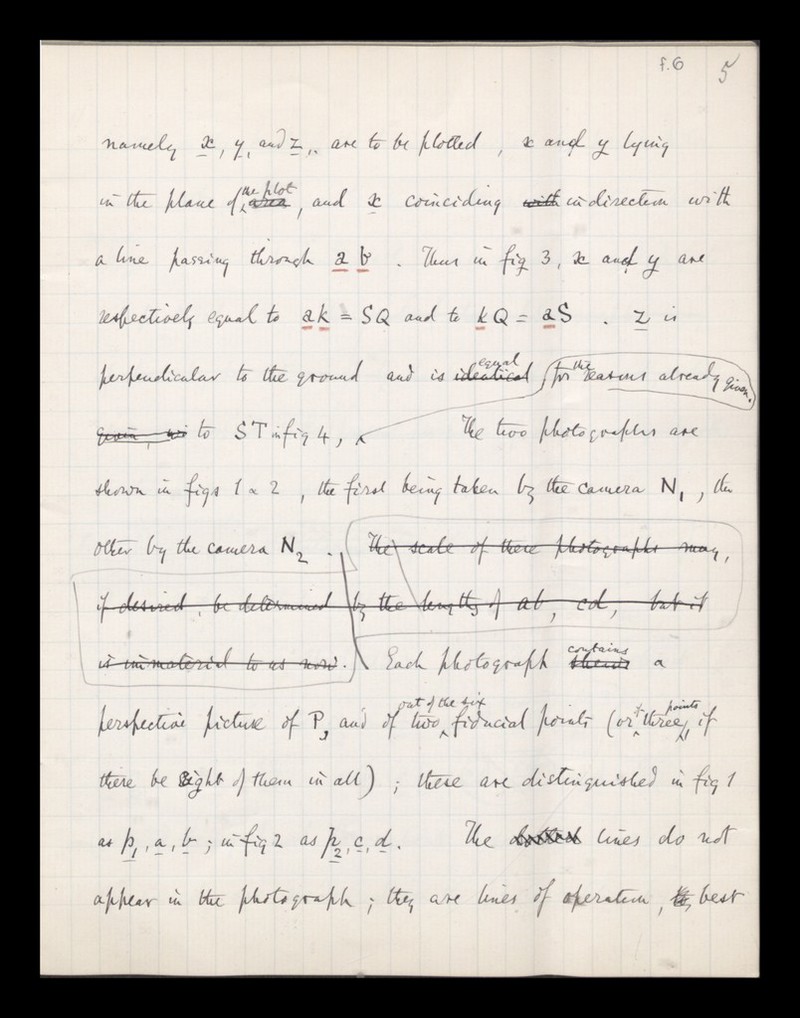 f.6 5
namely x, y, and z, are to be plotted, x and y lying
in the plane of the plot area, and x coinciding with in direction with
a line passing through a b. Thus in fig 3, x and y are
respectively equal to ak = SQ and to kQ = aS. z is
perpendicular to the ground and is identical equal for the reasons already given.
given, to ST in fig 4, The two photographs are
shown in figs 1 & 2, the first being taken by the camera N1, the
other by the camera N2. The scale of these photographs may,
if desired, be determined by the lengths of ab, cd, but it
is immaterial to us now. Each photograph shews contains a
perspective picture of P, and of two out of the six fiducial points (or three points, if
there be eight of them in all); these are distinguished in fig 1
as p1, a, b; in fig 2 as p2, c, d. The dotted lines do not
appear in the photograph; they are lines of operation, best